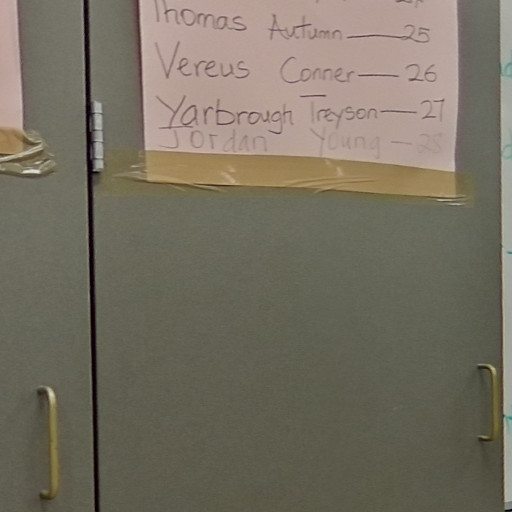 Thomas Autumn — 25
Vereus Conner — 26
Yarbrough Treyson — 27
Jordan Young — 28